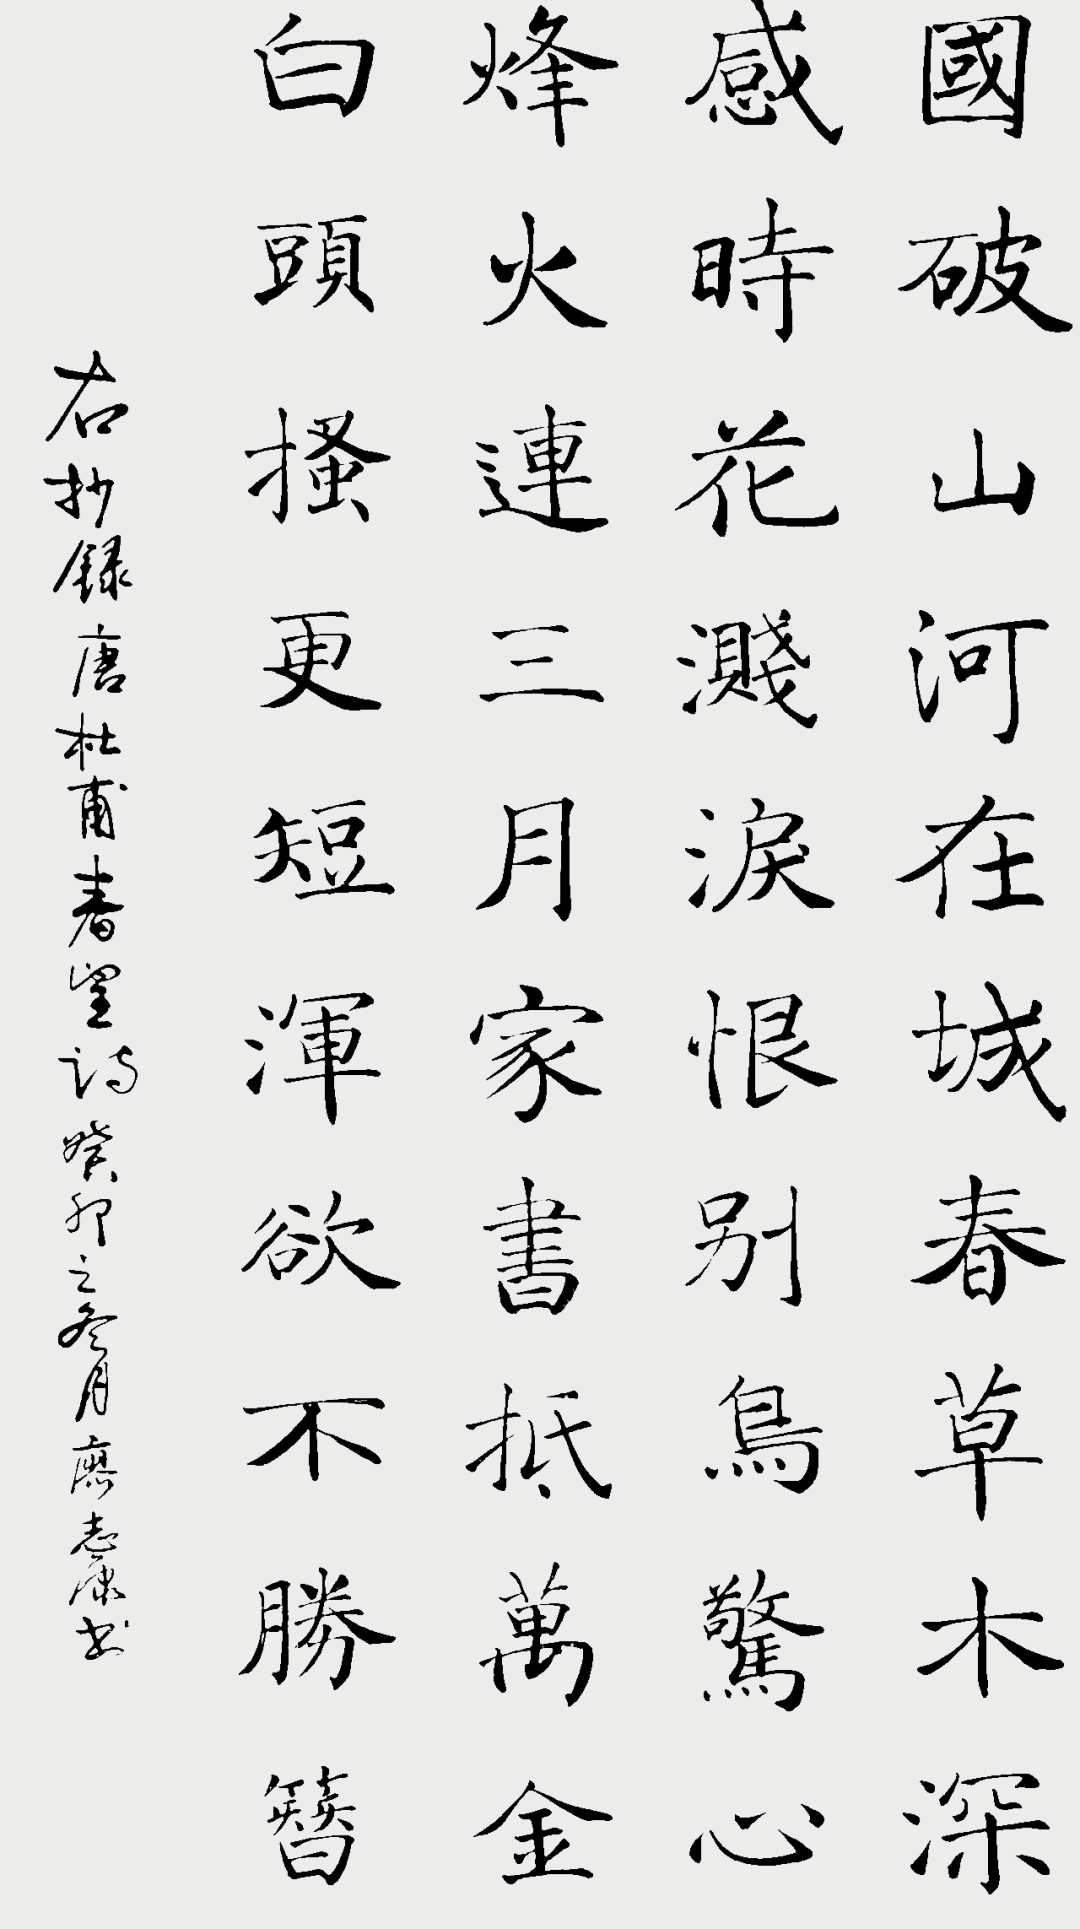 國破山河在城春草木深
感時花濺淚恨别鳥驚心
烽火連三月家書抵萬金
白頭搔更短渾欲不勝簪
右抄録唐杜甫春望詩癸卯之冬月廖志康书